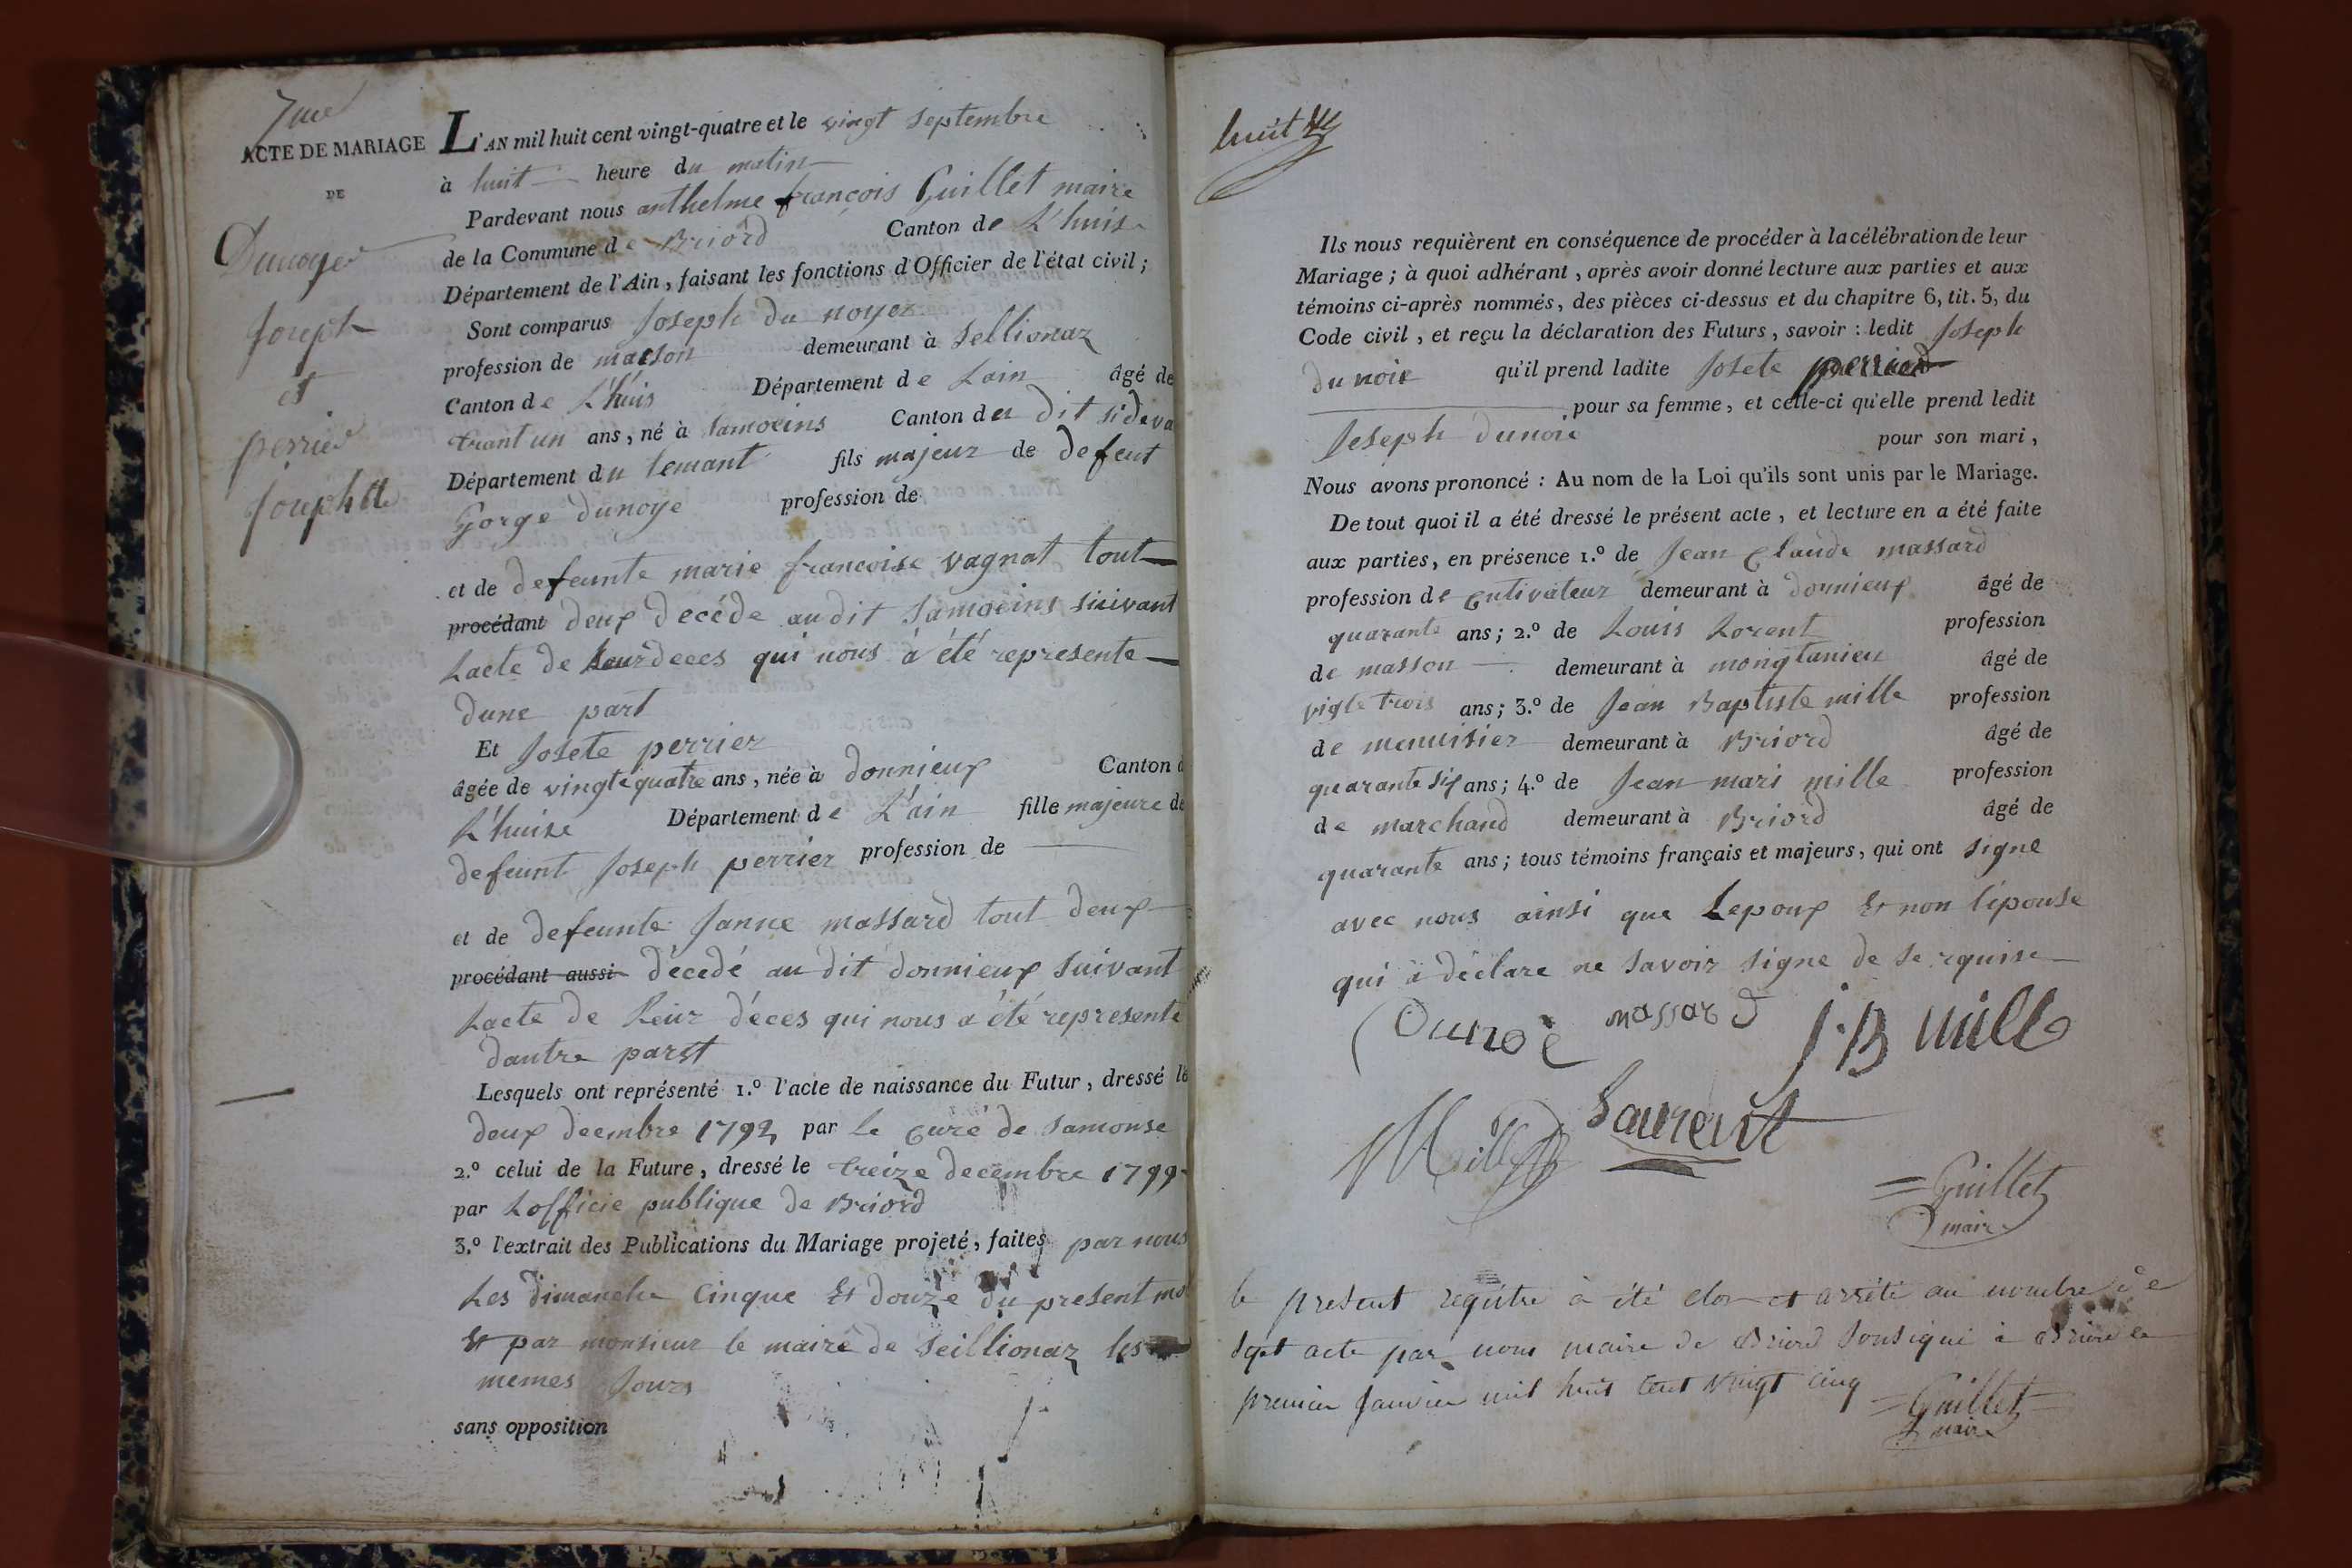 7me
ACTE DE MARIAGE
DE
Dunoyer
Joseph
et
perrier
Josephtte
L'AN mil huit cent vingt-quatre et le vingt septembre
à huit heure du matin
Pardevant nous anthelme françois Guillet maire
de la Commune de Briord Canton de L'huis
Département de l'Ain, faisant les fonctions d'Officier de l'état civil;
Sont comparus Joseph du noyer
profession de masson demeurant à Sellionaz
Canton de L'huis Département de Lain âgé de
trant un ans, né à Samoeins Canton du dit sideva
Département du lemant fils majeur de defeut
Gorge dunoye profession de
et de defeunte marie francoise vagnat tout
procédant deux decéde au dit Samoeins suivant
Lacte de Leurdeces qui nous à été represente
dune part
Et Josete perrier
âgée de vingtequatre ans, née à donnieux Canton d
L'huise Département de L'ain fille majeure de
defeunt Joseph perrier profession de
et de defeunte Janne massard tout deux
procédant aussi décedé au dit donnieux suivant
Lacte de Leur déces qui nous a été represente
dautre parst
Lesquels ont représenté 1.º l'acte de naissance du Futur, dressé le
deux decmbre 1792 par Le Curé de Samonse
2.º celui de la Future, dressé le treize decembre 1799
par Lofficie publique de Briord
3.º l'extrait des Publications du Mariage projeté, faites par nous
Les dimanche Cinque Et douze du present mo
Et par monsieur le maire de Seillionaz les
memes Jours
sans opposition
huit
Ils nous requièrent en conséquence de procéder à la célébration de leur
Mariage; à quoi adhérant, après avoir donné lecture aux parties et aux
témoins ci-après nommés, des pièces ci-dessus et du chapitre 6, tit. 5, du
Code civil, et reçu la déclaration des Futurs, savoir: ledit Joseph
du noie qu'il prend ladite Josete perrier
pour sa femme, et celle-ci qu'elle prend ledit
Joseph dunoie pour son mari,
Nous avons prononcé: Au nom de la Loi qu'ils sont unis par le Mariage.
De tout quoi il a été dressé le présent acte, et lecture en a été faite
aux parties, en présence 1.º de Jean Claude massard
profession de Cultivateur demeurant à donnieux âgé de
quarante ans; 2.º de Louis Lorent profession
de masson demeurant à mongtanieu âgé de
vigte trois ans; 3.º de Jean Baptiste mille profession
de menuisier demeurant à Briord âgé de
quarante six ans; 4.º de Jean mari mille profession
de marchand demeurant à Briord âgé de
quarante ans; tous témoins français et majeurs, qui ont signe
avec nous ainsi que Lepoux Et non lépouse
qui à déclare ne savoir signe de se rquise
Dunoé massard J.B mille
Mille Laurent
Guillet
maire
le present registre à été clos et arrêté au nombre de
sept acte par nous maire de Briord sousigné à Briord le
premier Janvier mil huit cent vingt cinq Guillet
maire